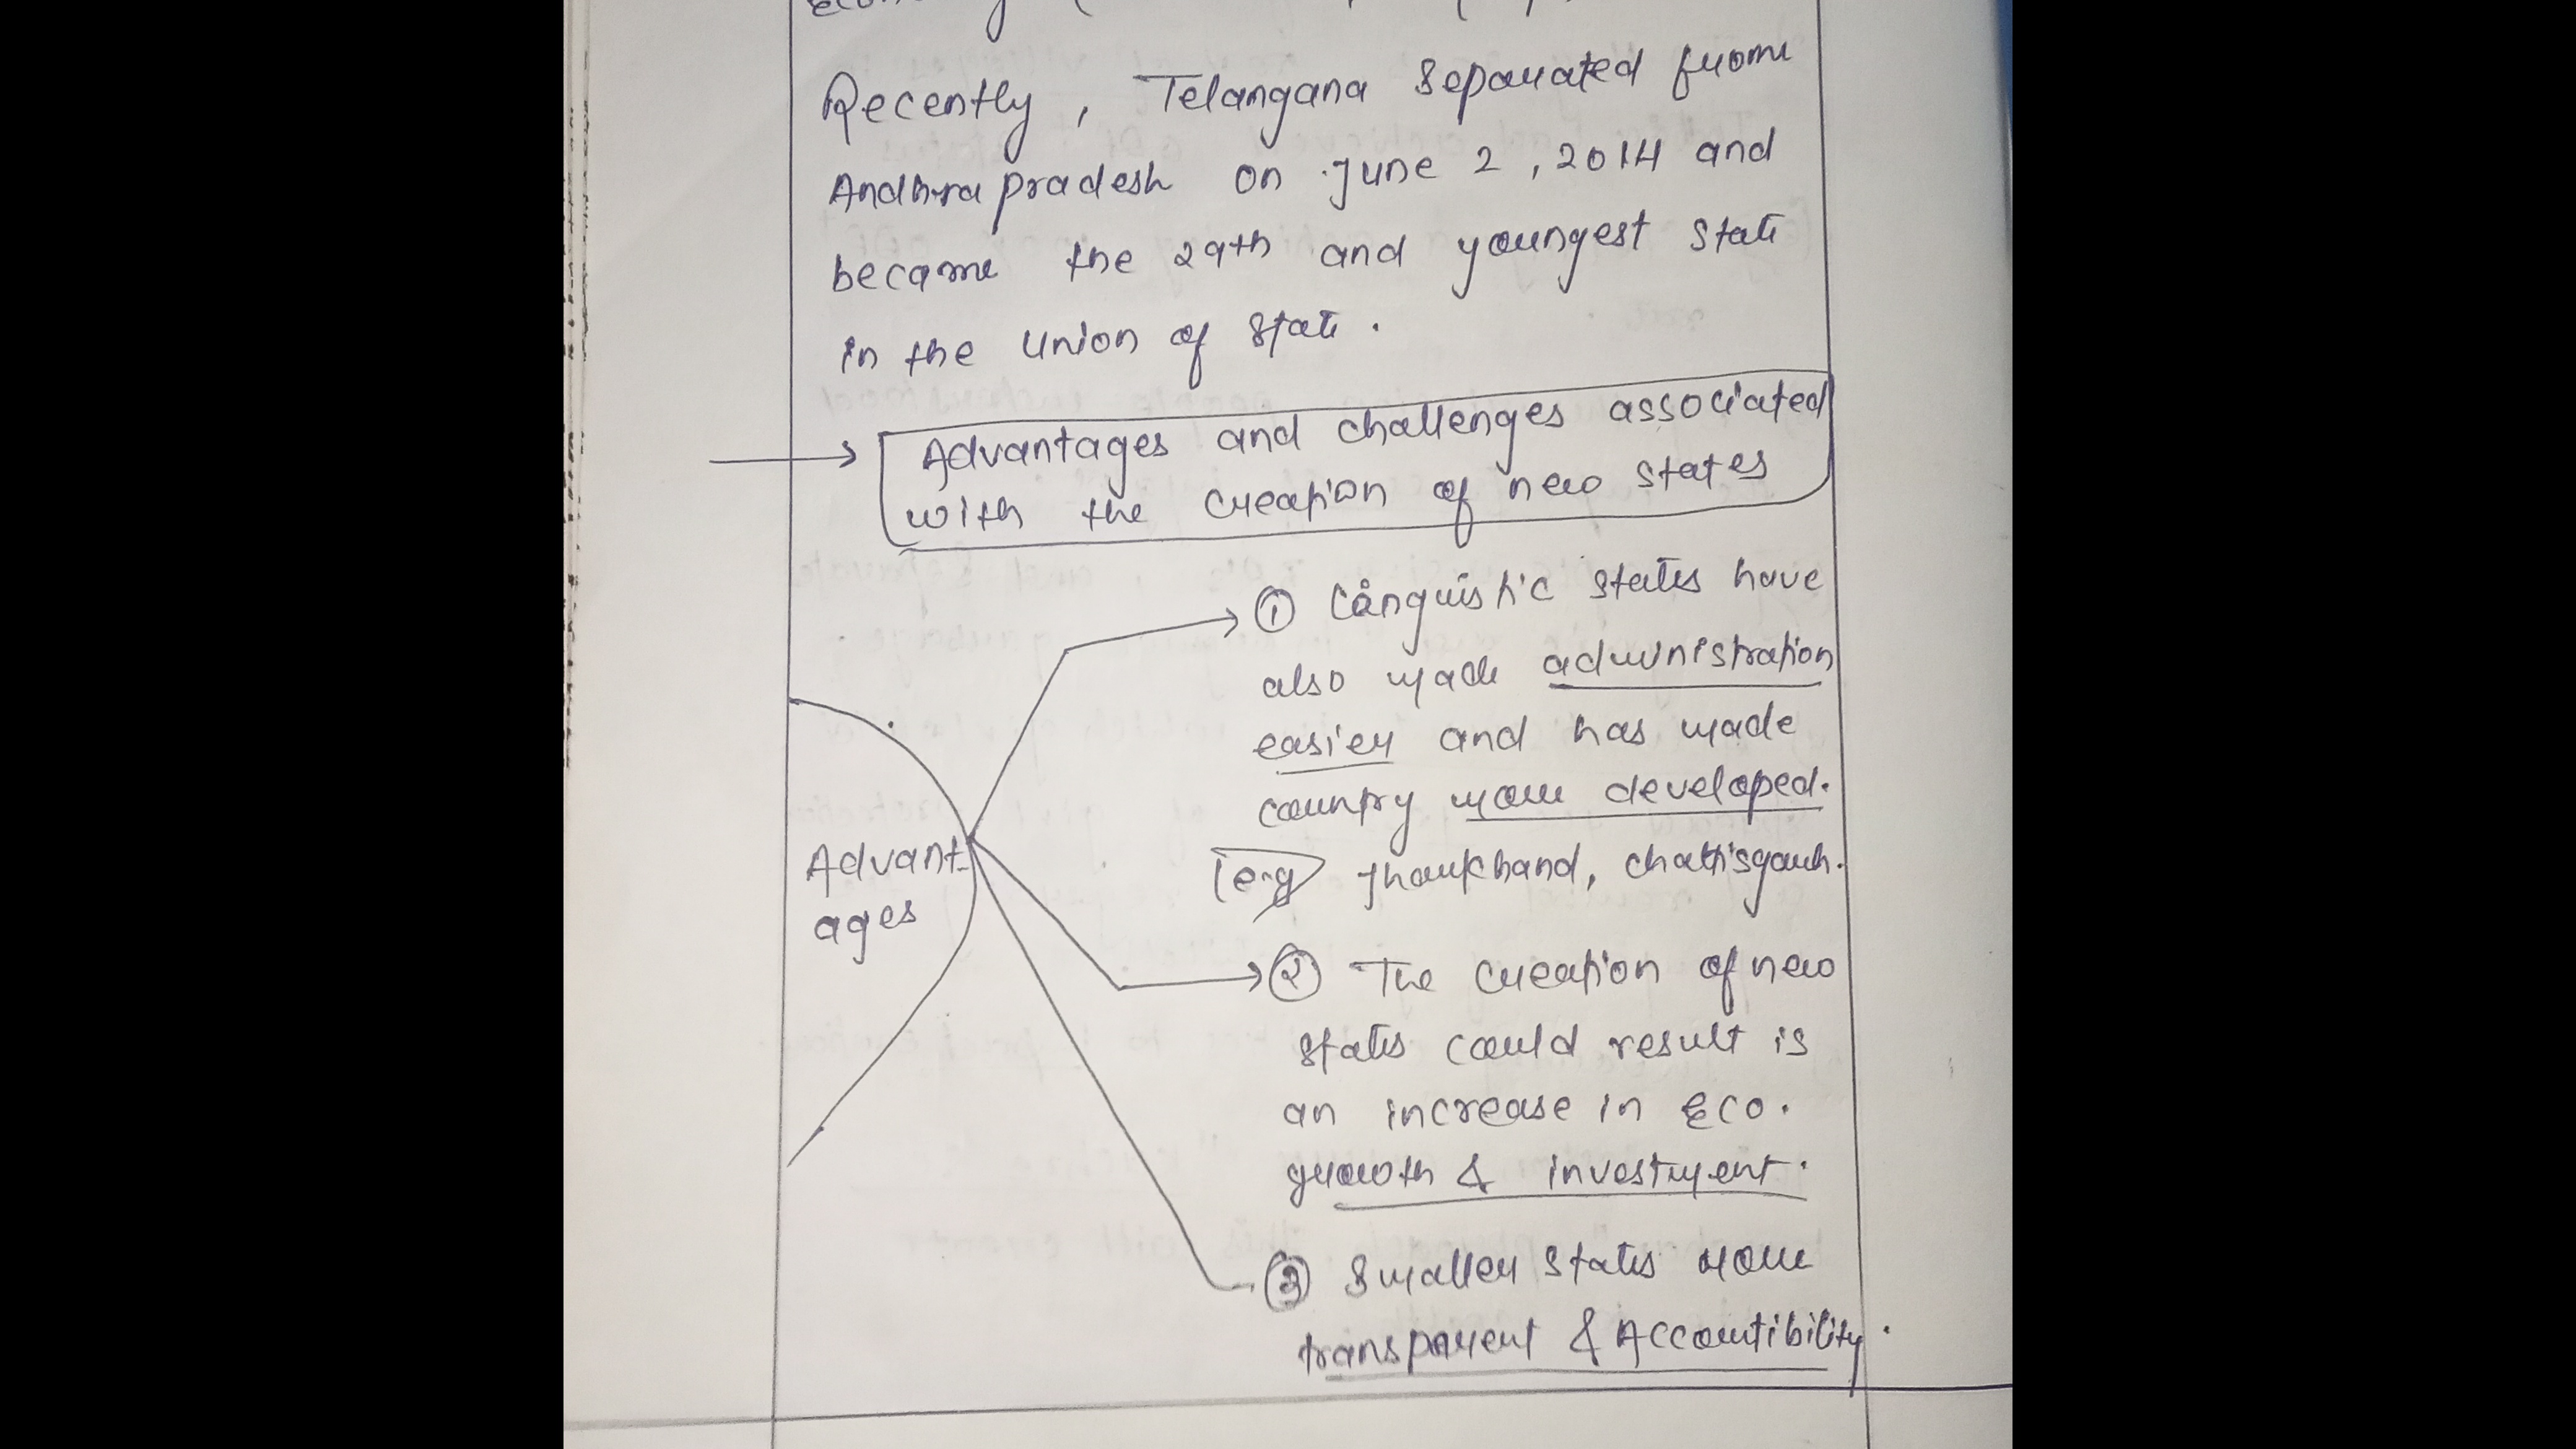 Recently, Telangana Separated from
Andhra pradesh on June 2, 2014 and
became the 29th and youngest State
in the Union of State.
Advantages and challenges associated
with the creation of new states
① Languistic states have
also made administration
easier and has made
country more developed.
e.g Jharkhand, chattisgarh.
Advant-
ages
② The creation of new
states could result is
an increase in Eco.
growth & investment.
③ Smaller States more
transparent & Accountibility.